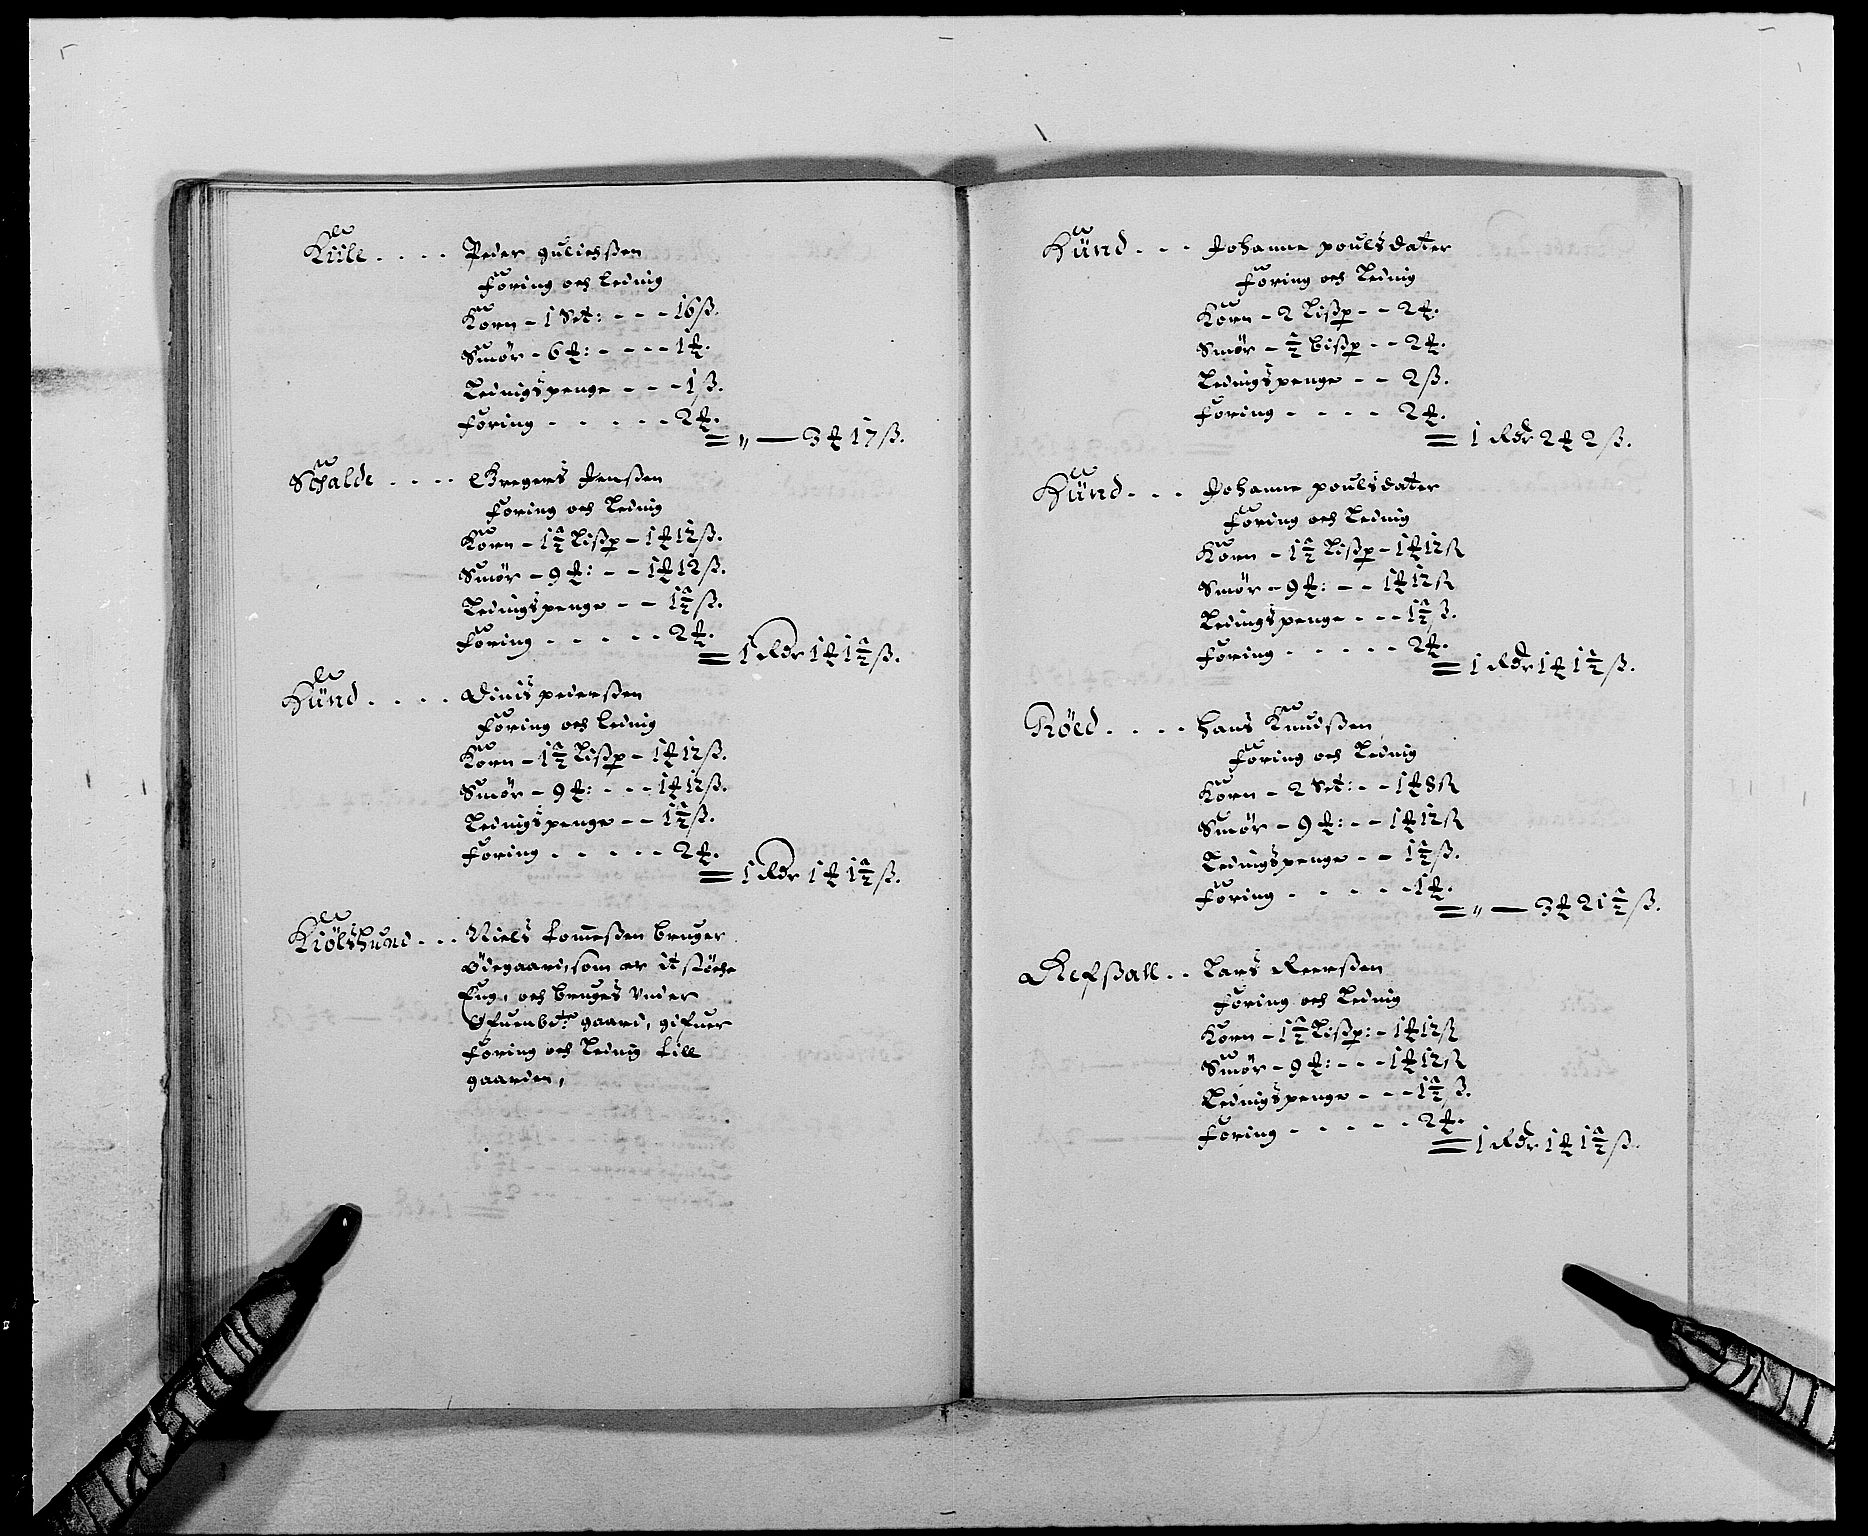 Kiile . . . . Peder gulichsßen
Foring och Leding
Korn - 1 Set: - - - 16 ß.
Smør - 6 ℔: - - - - 1 ℔.
Ledingspenge - - - 1 ß.
Foring . . . . . . 2 ℔.
= „ — 3 ℔ 17 ß.
Schalde . . . . Gregers Jenßen
Foring och Leding
Korn - 1½ Lißp - 1 ℔ 12 ß.
Smør - 9 ℔: - - 1 ℔ 12 ß.
Ledingspenge - - 1½ ß.
Foring . . . . . 2 ℔.
= 1 Rdr 1 ℔ 1½ ß.
Hünd . . . . Dinis pederßen
Foring och Leding
Korn - 1½ Lißp - 1 ℔ 12 ß.
Smør - 9 ℔: - - - 1 ℔ 12 ß.
Ledingspenge - - 1½ ß.
Foring . . . . . . 2 ℔.
= 1 Rdr 1 ℔ 1½ ß.
Kiölshund . . . Niels tommeßen bruger
ødegaard, som er it støche
Eng, och bruges Vnder
gaard, gifuer
Foring och Leding till
gaarden,
Hünd . . . Johanne poulsdater
Foring och Leding
Korn - 2 Lißp - - 2 ℔.
Smør - ½ bißp - - 2 ℔.
Ledingspenge - - 2 ß.
Foring . . . . 2 ℔.
= 1 Rdr 2 ℔ 2 ß.
Hünd . . . Johanne poulsdater
Foring och Leding
Korn - 1½ Lißp - 1 ℔ 12 ß
Smør - 9 ℔: - - 1 ℔ 12 ß
Ledingspenge - - - 1½ ß.
Foring . . . . . 2 ℔.
= 1 Rdr 1 ℔ 1½ ß.
Röed . . . . hans Knudßen
Foring och Leding
Korn - 2 Set: - - 1 ℔ 8 ß
Smør - 9 ℔: - - 1 ℔ 12 ß
Ledingspenge - - 1½ ß.
Foring . . . . . 1 ℔.
= „ — 3 ℔ 21½ ß.
Refßall . . Lars Reerßen
Foring och Leding
Korn - 1½ Lißp: - 1 ℔ 12 ß
Smør - 9 ℔: - - - 1 ℔ 12 ß
Ledingspenge - - - 1½ ß.
Foring . . . . . 2 ℔.
= 1 Rdr 1 ℔ 1½ ß.